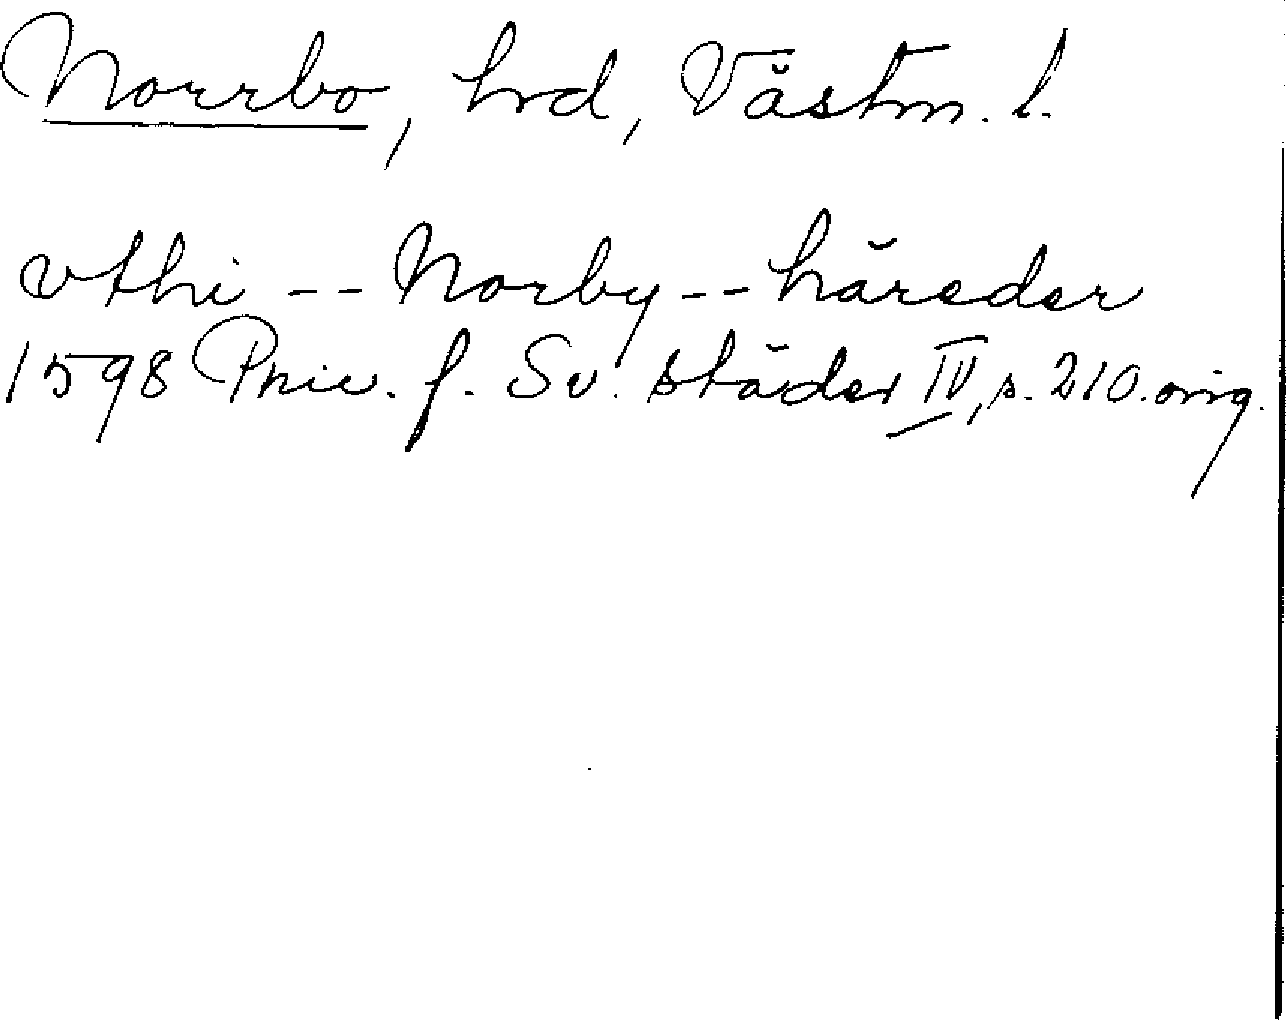 Norrbo, hrd, Västm. l.
vthi -- Norby -- häreder
1598 Priv. f. Sv. städer IV, s. 210. orig.